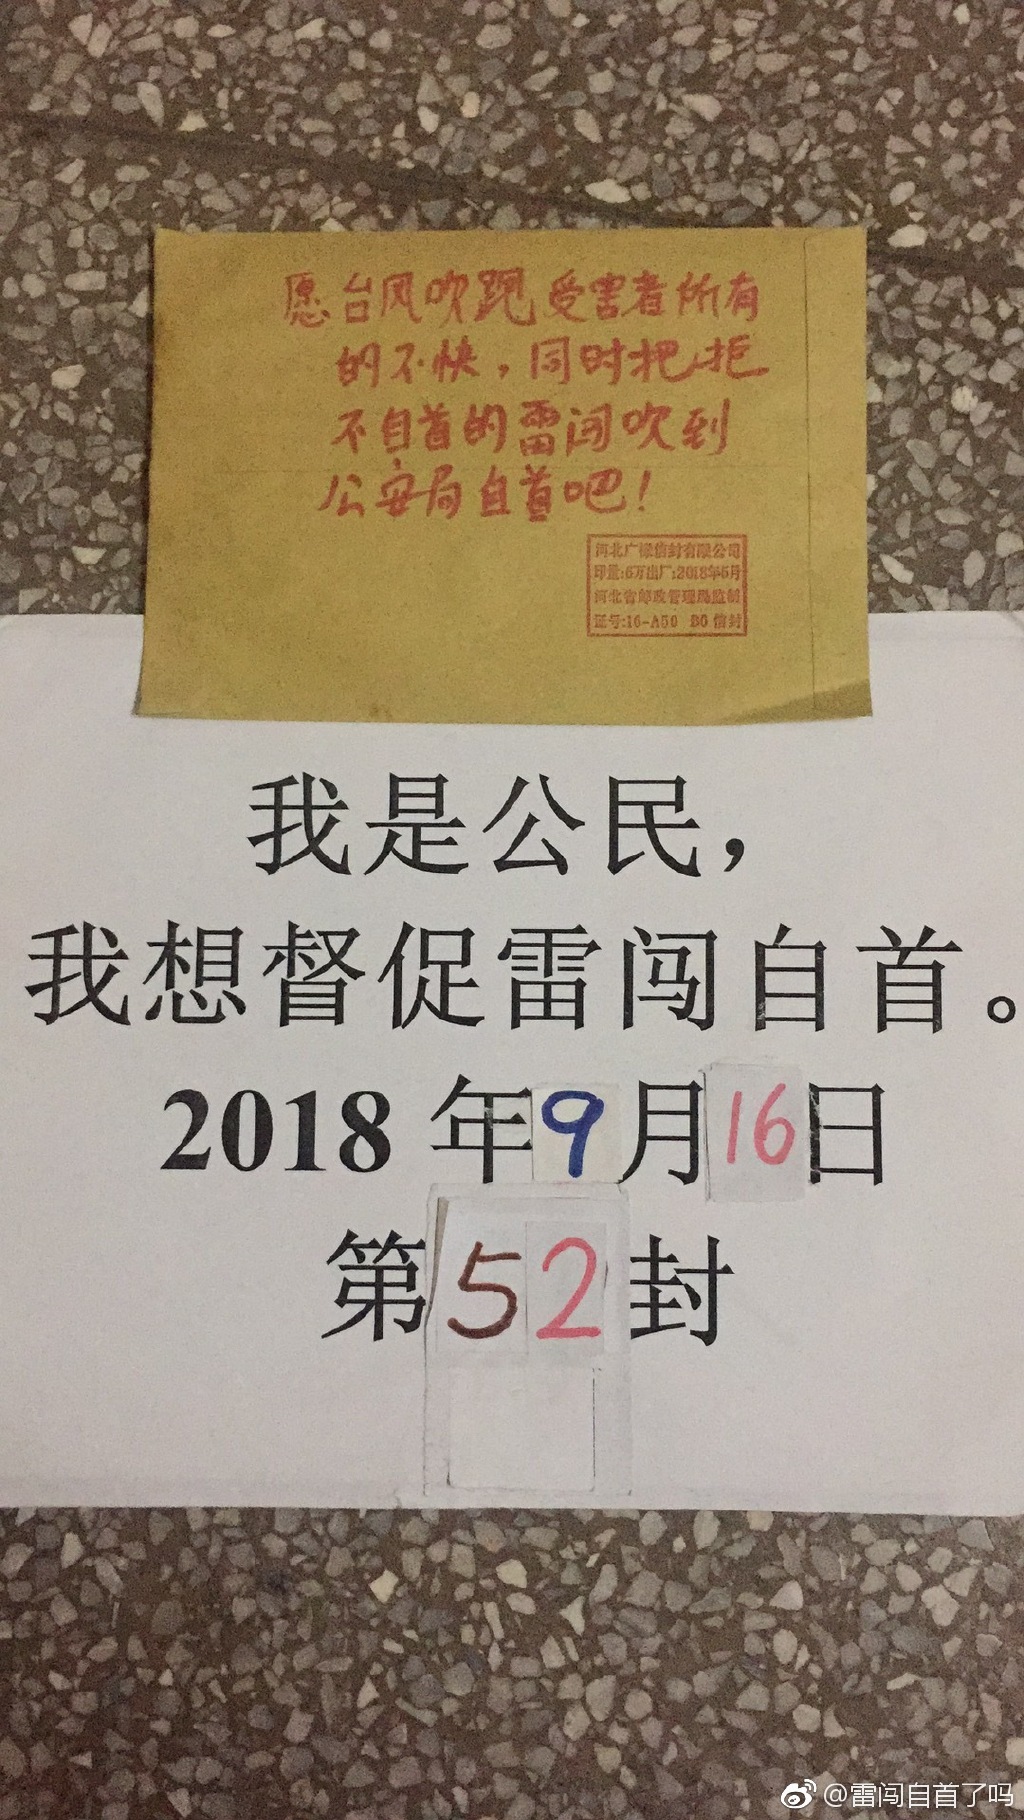 愿台风吹跑受害者所有
的不快，同时把拒
不自首的雷闯吹到
公安局自首吧！
河北广禄信封有限公司
印量:6万出厂:2018年5月
河北省邮政管理局监制
证号:16-A50 B6信封
我是公民，
我想督促雷闯自首。
2018年9月16日
第52封
@雷闯自首了吗